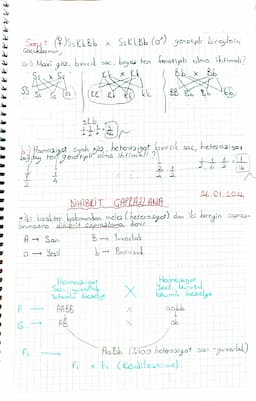 Soru: (♀) SsKkBb × SsKkBb (♂) genotipli bireylerin
çocuklarının,
a-) Mavi göz, kıvırcık saç, beyaz ten fenotipli olma ihtimali?
Ss × Ss Kk × Kk Bb × Bb
SS Ss Ss ss KK Kk Kk kk BB Bb Bb bb
b-) Homozigot siyah göz, heterozigot kıvırcık saç, heterozigot
buğday ten genotipli olma ihtimali?
26.01.2021
DİHİBRİT ÇAPRAZLAMA
* İki karakter bakımından melez (heterozigot) olan iki bireyin çapraz-
lanmasına dihibrit çaprazlama denir.
A → Sarı B → Yuvarlak
a → Yeşil b → Buruşuk
Homozigot Homozigot
Sarı, yuvarlak × Yeşil, buruşuk
tohumlu bezelye tohumlu bezelye
P → AABB × aabb
G → AB × ab
F₁ → AaBb (%100 heterozigot sarı-yuvarlak)
F₁ × F₁ (Kendileştirme)